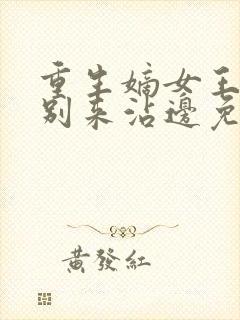 重生嫡女王
别来沾邊免
黃發紅